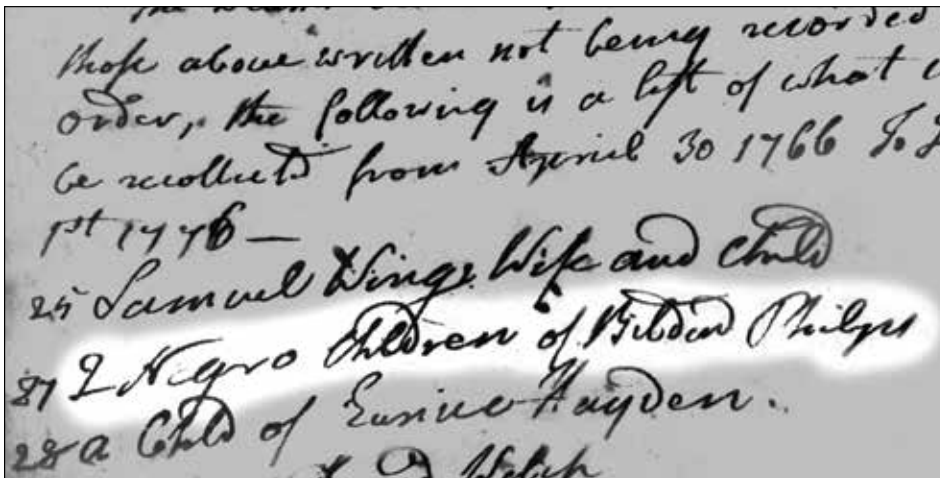 those above written not being recorded
order, the following is a list of what
be recollected from April 30 1766 To
1st 1776 —
25 Samuel Wings Wife and Child
27 2 Negro Children of Bildad Phelps
28 a Child of Eunice Hayden.
Welch